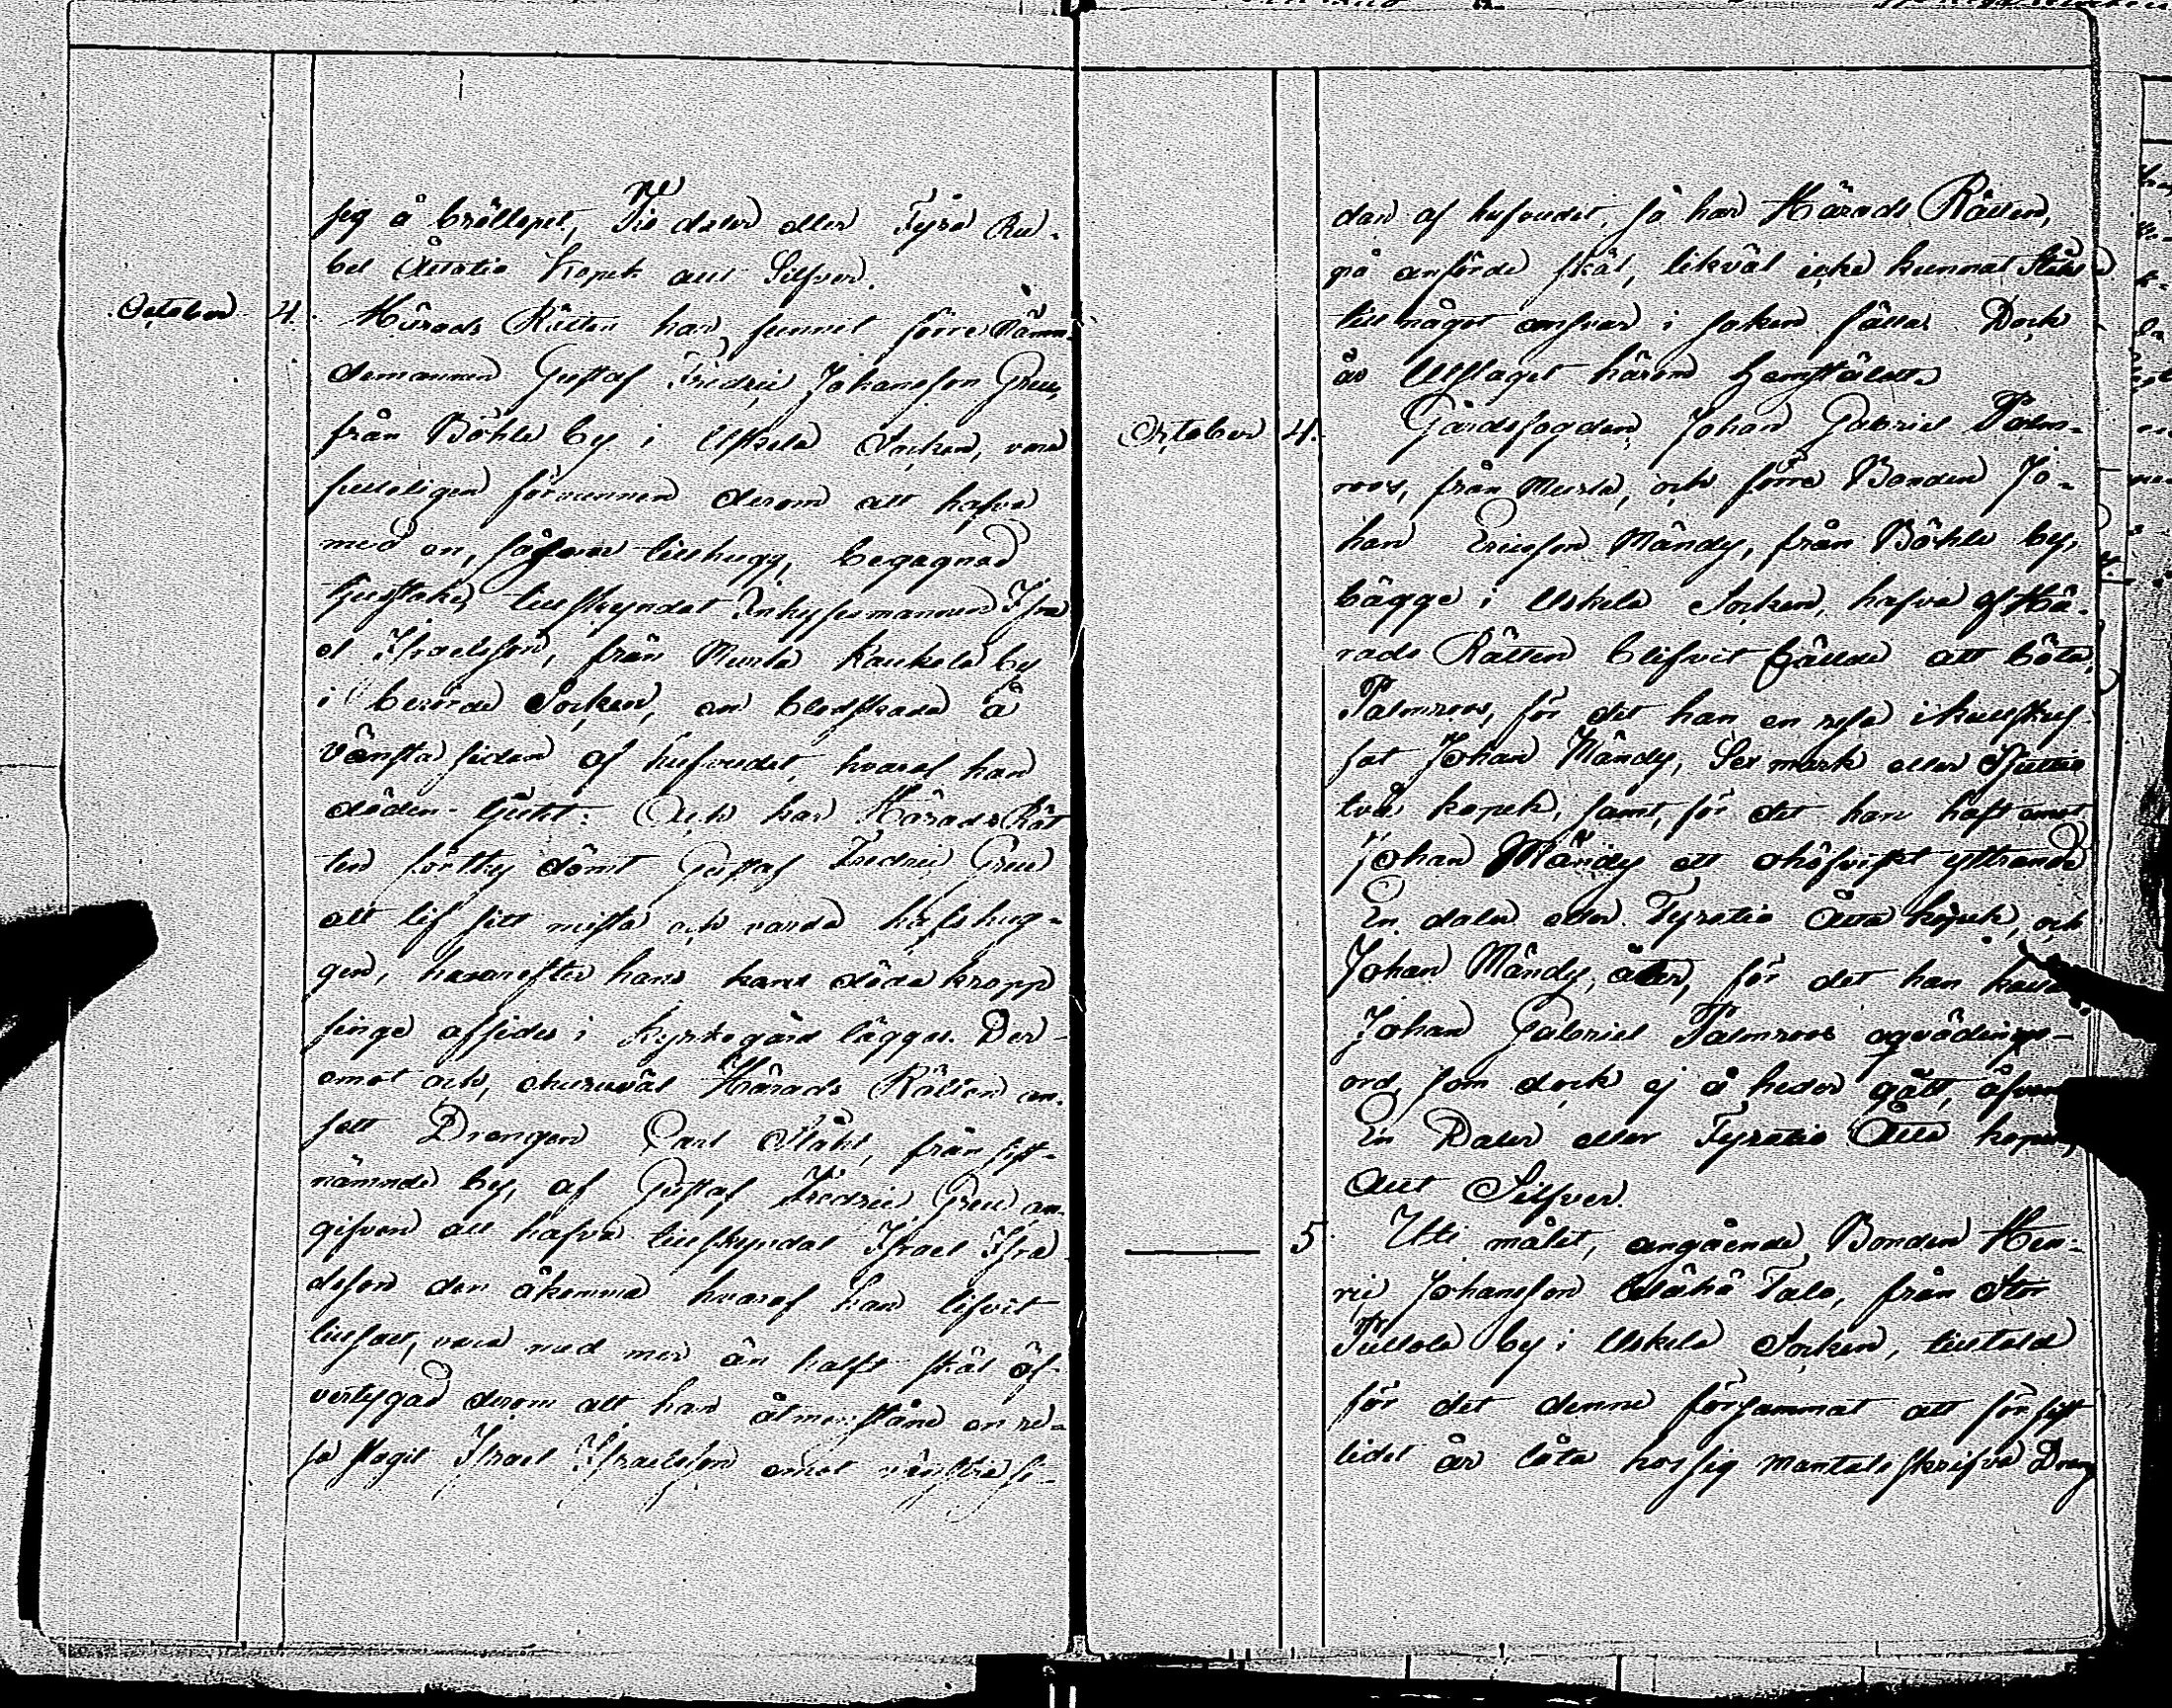 sig å bröllopet, Tio daler eller Fyra Ru-
bel Åttatio Kopek allt Silfver.
October 4. Härads Rätten har funnit förre Nämn-
demannen Gustaf Fredric Johansson Greu,
från Böhle by i Uskela Socken, vara
fulleligen förvunnen derom att hafva
med en, såsom tillhugg, begagnad
ljusstake, tillskyndat Inhysesmannen Isra
el Israelsson, från Murla Kaukola by
i berörde Socken, en blodskada å
vänstra sidan af hufvudet, hvaraf han
döden ljutit: Och har Härads Rät
ten förthy dömt Gustaf Fredric Greu
att lif sitt mista och varda halshug-
gen, hvarefter hans döda kropp
finge afsides i kyrkogård läggas. Der-
emot och, ehuruväl Härads Rätten an-
sett Drengen Carl Ståhl, från sist-
nämnde by, af Gustaf Fredric Greu an-
gifven att hafva tillskyndat Israel Isra
elsson den åkomma hvaraf han lifvit
tillsatt, vara med mer än half skäl öf-
vertygad derom att han åtminstone en re-
sa slagit Israel Israelsson emot vänstra si-
dan af hufvudet, så har Härads Rätten,
på anförde skäl, likväl icke kunnat Ståhl
till något ansvar i saken fälla. Dock
är Utslaget härom hemstäldt.
October 4. Gårdsfogden Johan Gabriel Palm-
roos, från Murla, och förre Bonden Jo-
han Ericsson Mändy, från Böhle by,
bägge i Uskela Socken, hafva af Hä-
rads Rätten blifvit fällde att böta,
Palmroos, för det han en resa
Johan Mändy, Sex mark eller Sjuttio
två kopek, samt, för det han haft emot
Johan Mändy ett ohöfviskt yttrande
En daler eller Fyratio Åtta kopek, och
Johan Mändy, åter, för det han
Johan Gabriel Palmroos oqvädings-
ord, som dock ej å heder gått, äfven
En Daler eller Fyratio Åtta kopek,
Allt Silfver.
5. Uti målet, angående Bonden Hen-
ric Johansson Talo, från Stor
by i Uskela Socken, tilltald
för det denne försummat att för sist
lidet år låta hos sig mantalsskrifva Dreng